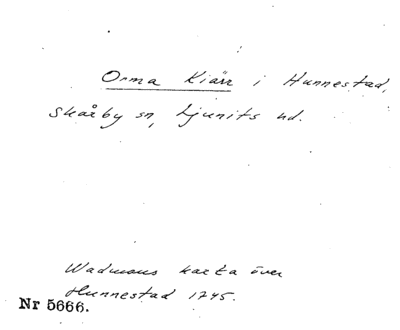 Orma Kiärr i Hunnestad,
Skårby sn, Ljunits hd.
Wadmans karta över
Hunnestad 1745.
Nr 5666.